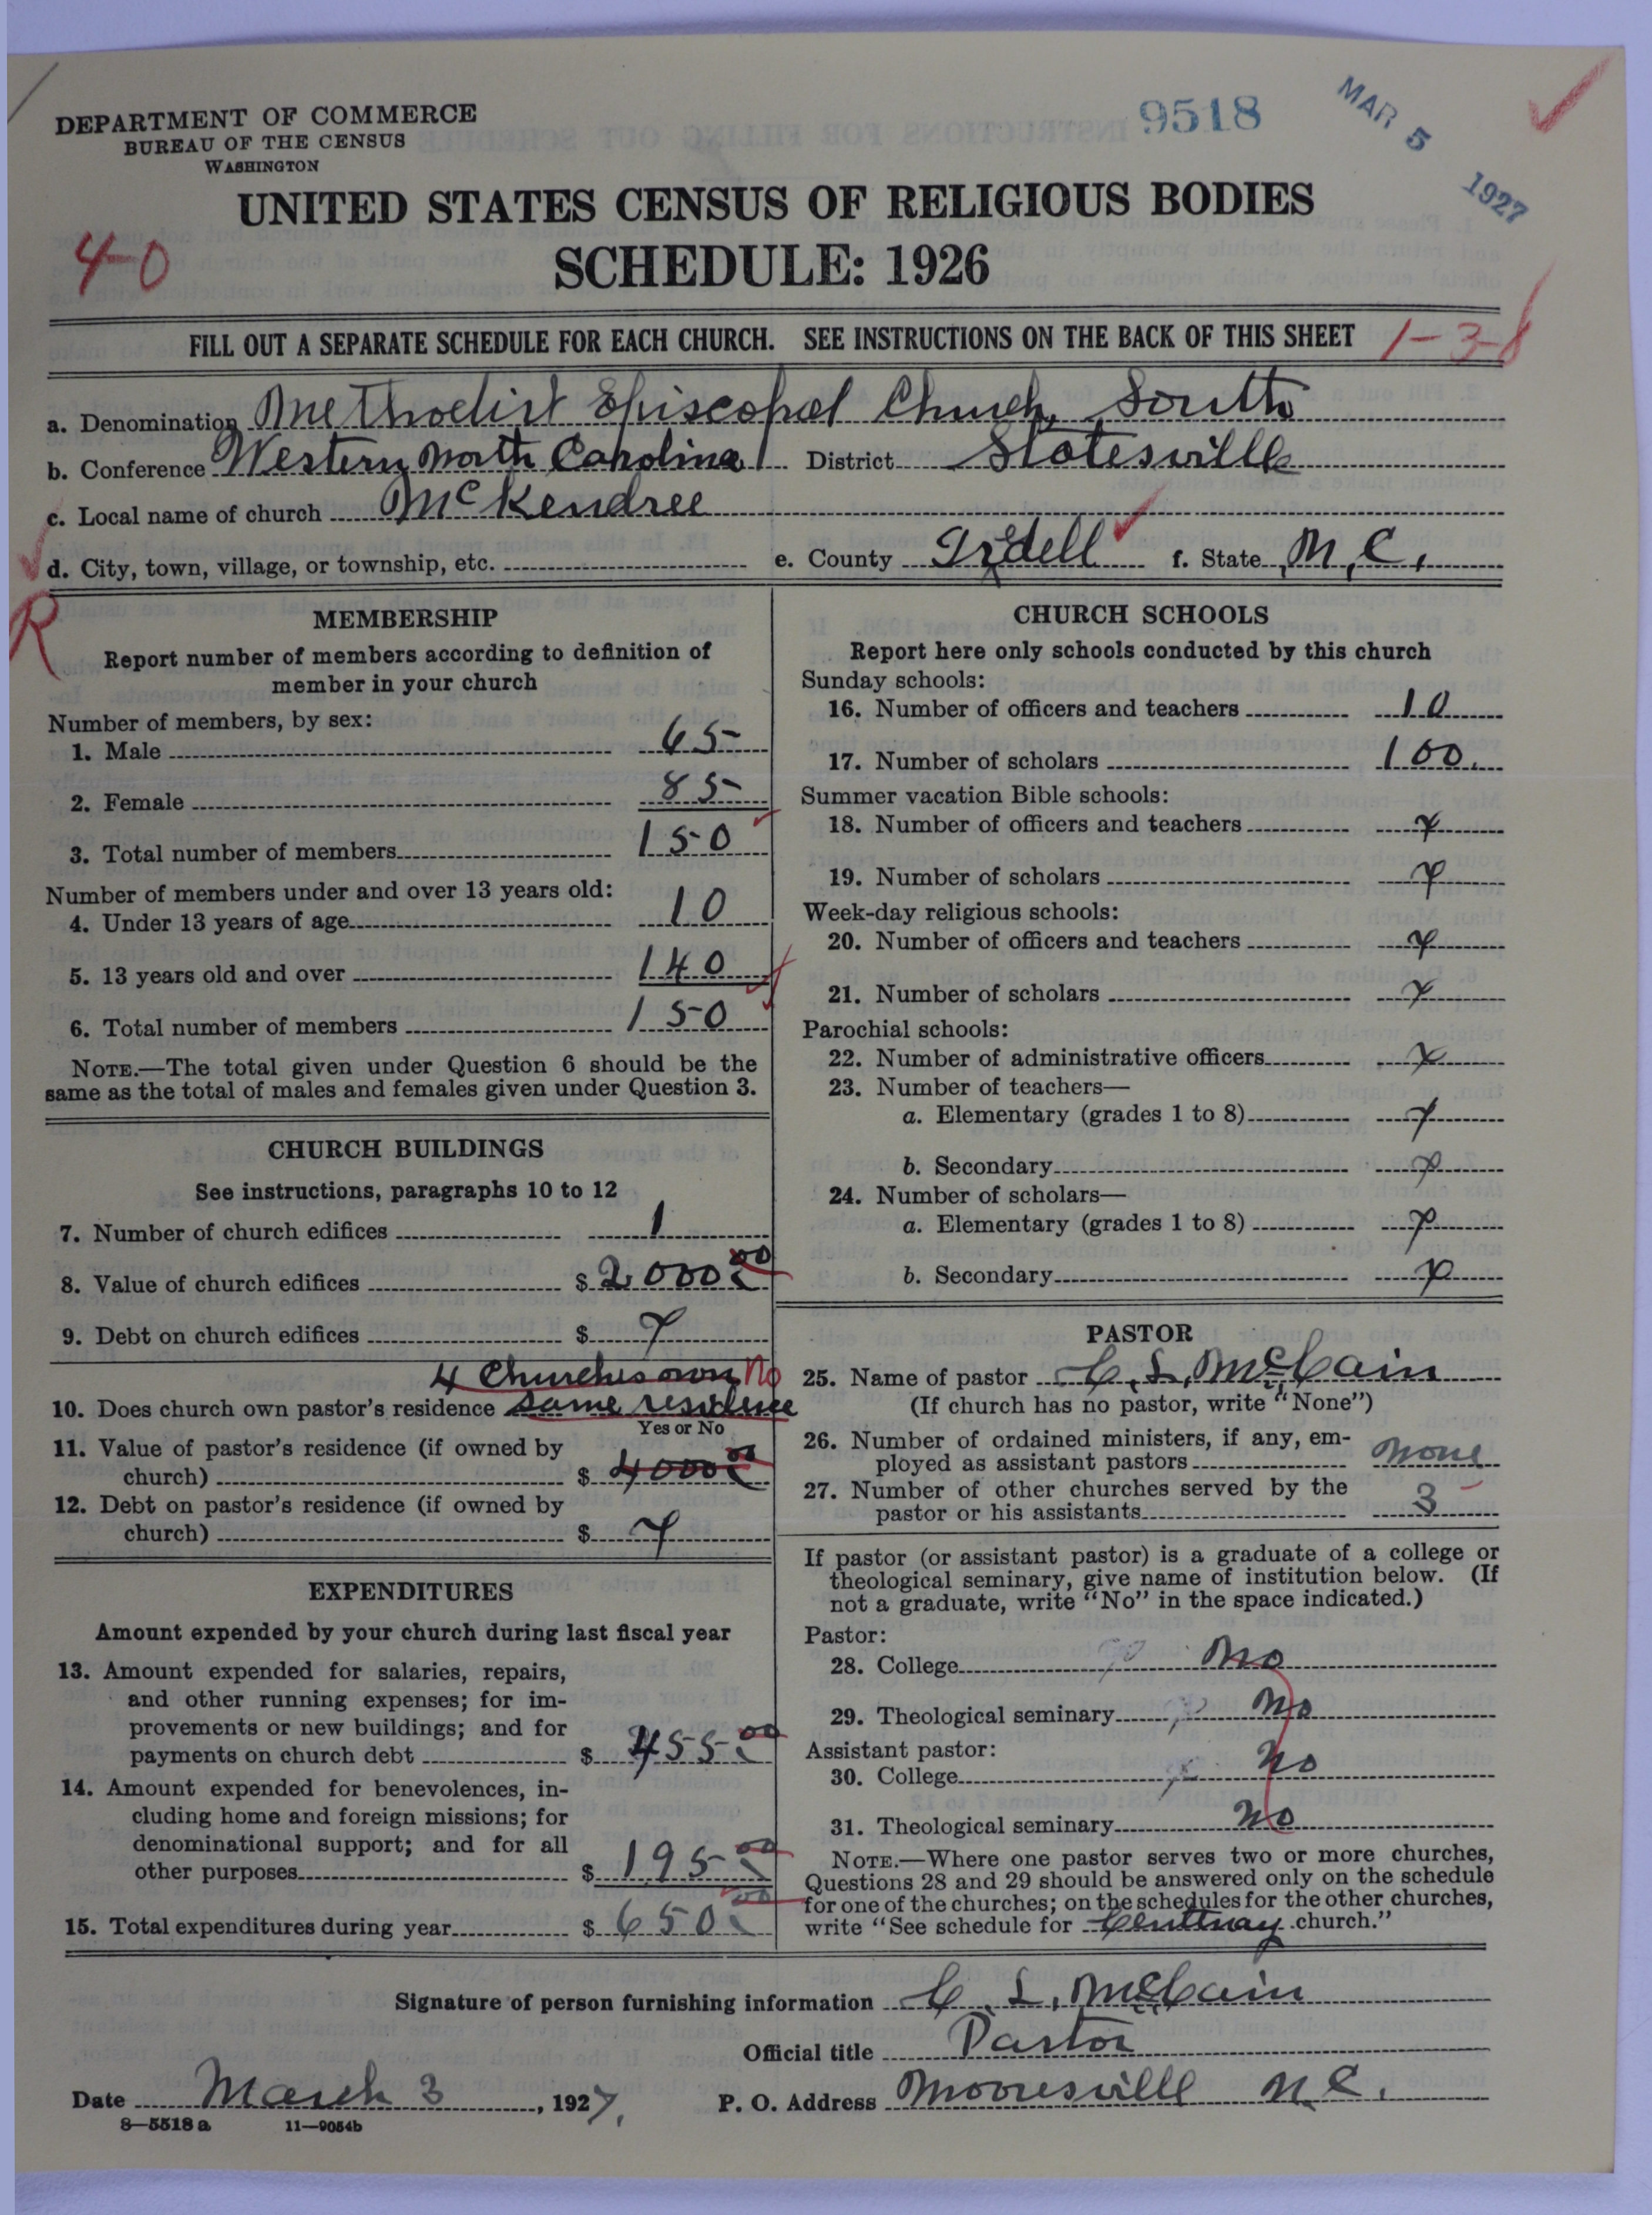 DEPARTMENT OF COMMERCE
BUREAU OF THE CENSUS
WASHINGTON
9518
MAR 5 1927
UNITED STATES CENSUS OF RELIGIOUS BODIES
SCHEDULE: 1926
40
FILL OUT A SEPARATE SCHEDULE FOR EACH CHURCH. SEE INSTRUCTIONS ON THE BACK OF THIS SHEET
1-3-8
a. Denomination Methodist Episcopal Church, South
b. Conference Western North Carolina District Statesville
c. Local name of church McKendree
d. City, town, village, or township, etc. e. County Iredell f. State N.C.
R
MEMBERSHIP
Report number of members according to definition of
member in your church
Number of members, by sex:
1. Male 65
2. Female 85
3. Total number of members 150
Number of members under and over 13 years old:
4. Under 13 years of age 10
5. 13 years old and over 140
6. Total number of members 150
NOTE.—The total given under Question 6 should be the
same as the total of males and females given under Question 3.
CHURCH BUILDINGS
See instructions, paragraphs 10 to 12
7. Number of church edifices 1
8. Value of church edifices $ 2000 00
9. Debt on church edifices $
4 Churches own No
10. Does church own pastor's residence same residence
Yes or No
11. Value of pastor's residence (if owned by
church) $ 4000 00
12. Debt on pastor's residence (if owned by
church) $
EXPENDITURES
Amount expended by your church during last fiscal year
13. Amount expended for salaries, repairs,
and other running expenses; for im-
provements or new buildings; and for
payments on church debt $ 455 00
14. Amount expended for benevolences, in-
cluding home and foreign missions; for
denominational support; and for all
other purposes $ 195 00
15. Total expenditures during year $ 650 00
CHURCH SCHOOLS
Report here only schools conducted by this church
Sunday schools:
16. Number of officers and teachers 10
17. Number of scholars 100.
Summer vacation Bible schools:
18. Number of officers and teachers x
19. Number of scholars x
Week-day religious schools:
20. Number of officers and teachers x
21. Number of scholars x
Parochial schools:
22. Number of administrative officers x
23. Number of teachers—
a. Elementary (grades 1 to 8) x
b. Secondary x
24. Number of scholars—
a. Elementary (grades 1 to 8) x
b. Secondary x
PASTOR
25. Name of pastor C. L. McCain
(If church has no pastor, write "None")
26. Number of ordained ministers, if any, em-
ployed as assistant pastors None
27. Number of other churches served by the
pastor or his assistants 3
If pastor (or assistant pastor) is a graduate of a college or
theological seminary, give name of institution below. (If
not a graduate, write "No" in the space indicated.)
Pastor:
28. College No
29. Theological seminary No
Assistant pastor:
30. College No
31. Theological seminary No
NOTE.—Where one pastor serves two or more churches,
Questions 28 and 29 should be answered only on the schedule
for one of the churches; on the schedules for the other churches,
write "See schedule for church."
Signature of person furnishing information C. L. McCain
Official title Pastor
Date March 3, 1927. P. O. Address Mooresville N.C.
8—5518 a 11—9054b